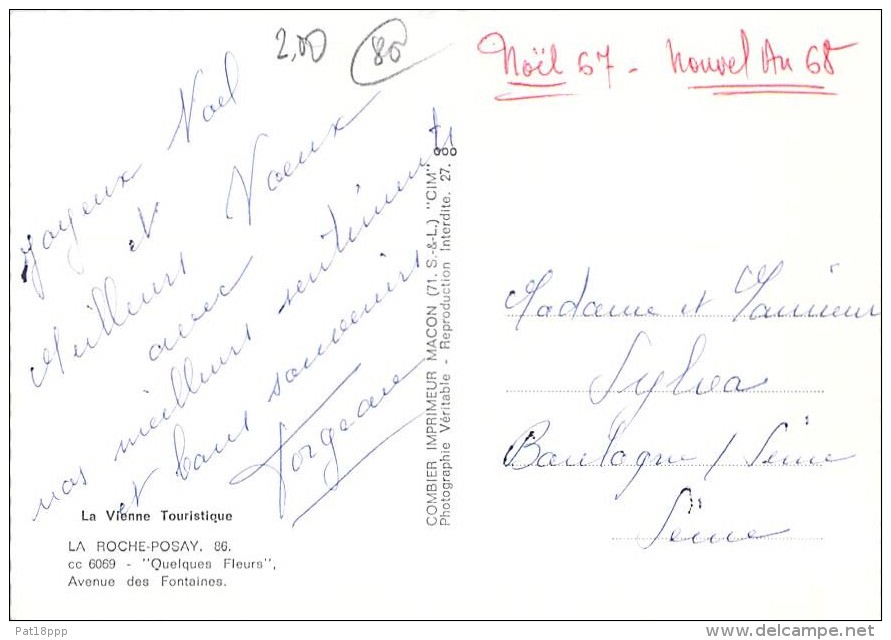 2,00
86
Noël 67 - Nouvel An 68
Joyeux Noel
et
Meilleurs Voeux
avec
nos meilleurs sentiments
et bons souvenirs
COMBIER IMPRIMEUR MACON (71. S.-&-L.) "CIM"
Photographie Véritable - Reproduction Interdite. 27.
Madame et Monsieur
Sylva
Boulogne / Seine
Seine
La Vienne Touristique
LA ROCHE-POSAY. 86.
cc 6069 - "Quelques Fleurs",
Avenue des Fontaines.
Pat18ppp
delcampe.net